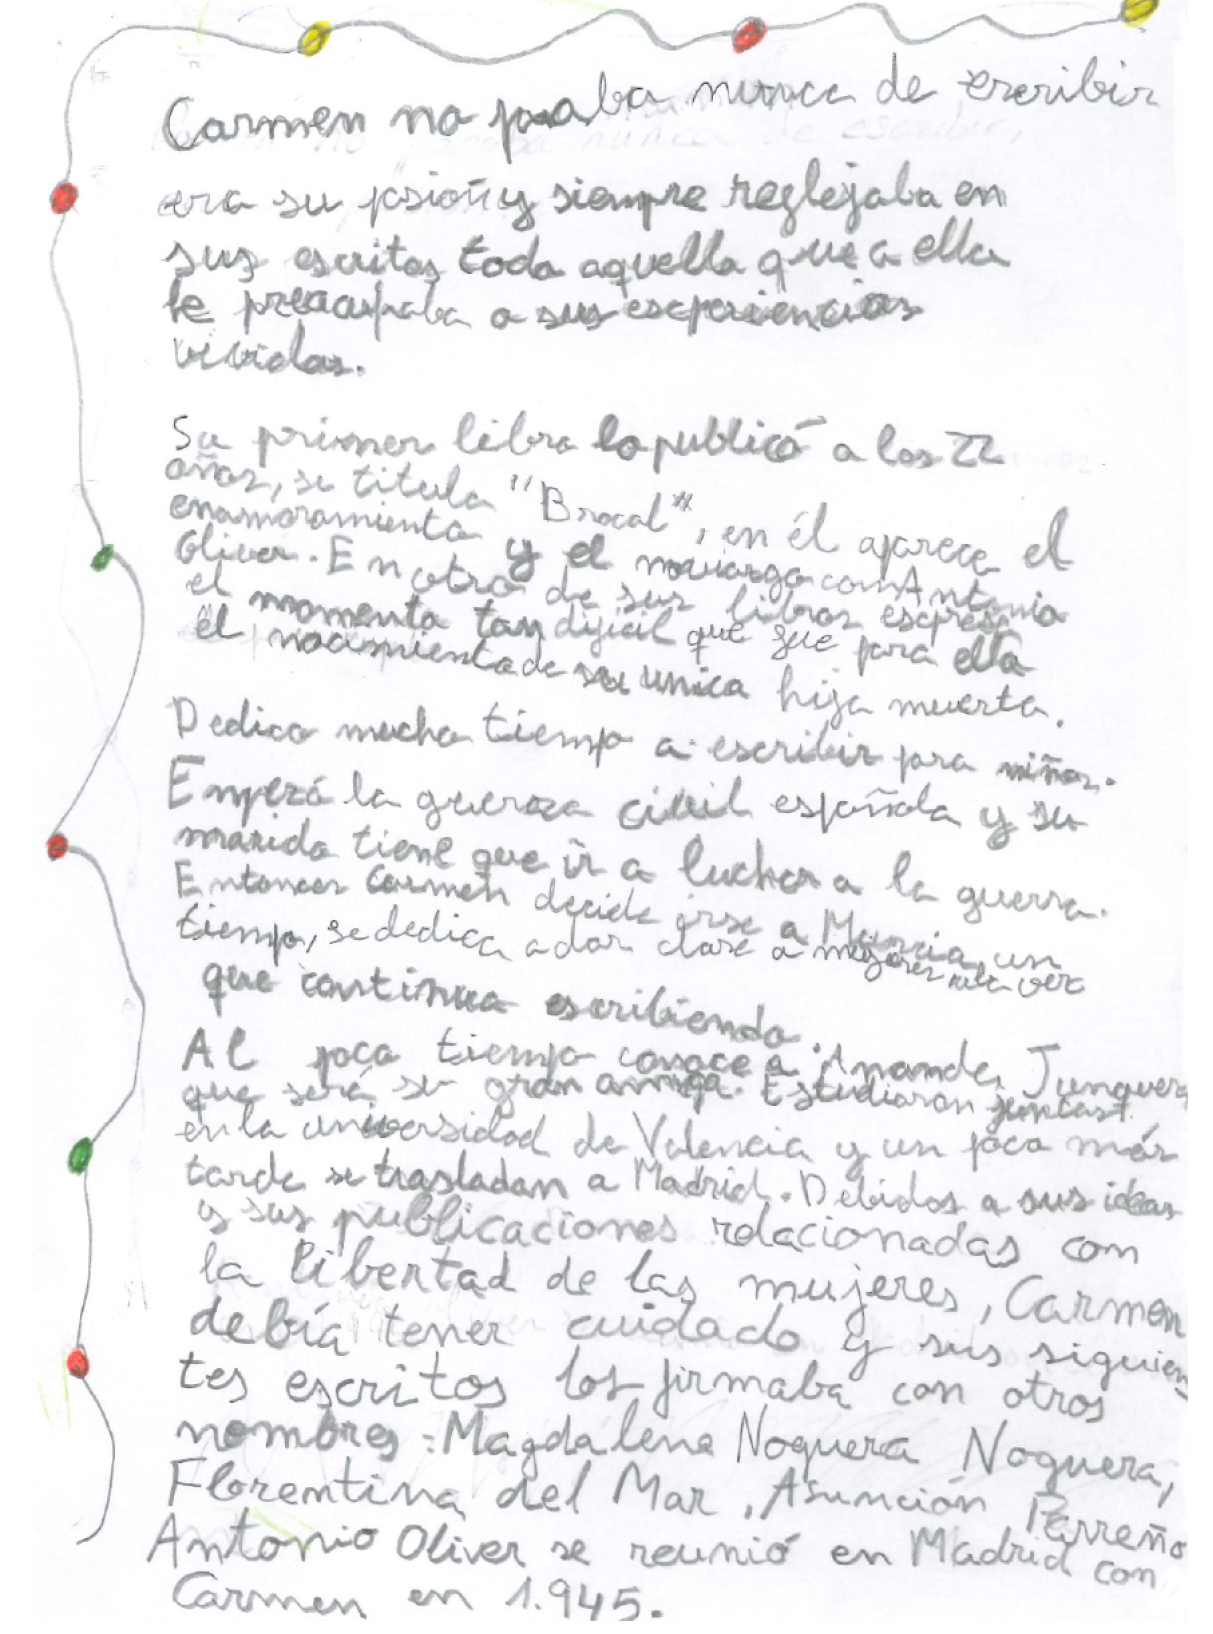 Carmen no paraba nunca de escribir
era su pasión y siempre reglejaba en
sus escritos todo aquello que a ella
le preocupaba o sus escperiencias
vividas.
Su primer libro lo publicó a los 22
años, se titula "Brocal", en él aparece el
enamoramiento y el noviazgo con Antonio
Oliver. En otro de sus libros escpresa
el momento tan dificil que fue para ella
el nacimiento de su unica hija muerta.
Dedico mucho tiempo a escribir para niños.
Empezó la guerra civil española y su
marido tiene que ir a luchar a la guerra.
Entonces Carmen decide irse a Murcia, un
tiempo, se dedica a dar clase a mujeres a la vez
que continua escribiendo.
Al poco tiempo conoce a Amanda Junquera
que será su gran amiga. Estudiaron juntas
en la universidad de Valencia y un poco más
tarde se trasladan a Madrid. Debidos a sus ideas
y sus publicaciones relacionadas con
la libertad de las mujeres, Carmen
debía tener cuidado y sus siguien
tes escritos los firmaba con otros
nombres: Magdalena Noguera Noguera,
Florentina del Mar, Asunción Parreño
Antonio Oliver se reunió en Madrid con
Carmen en 1.945.